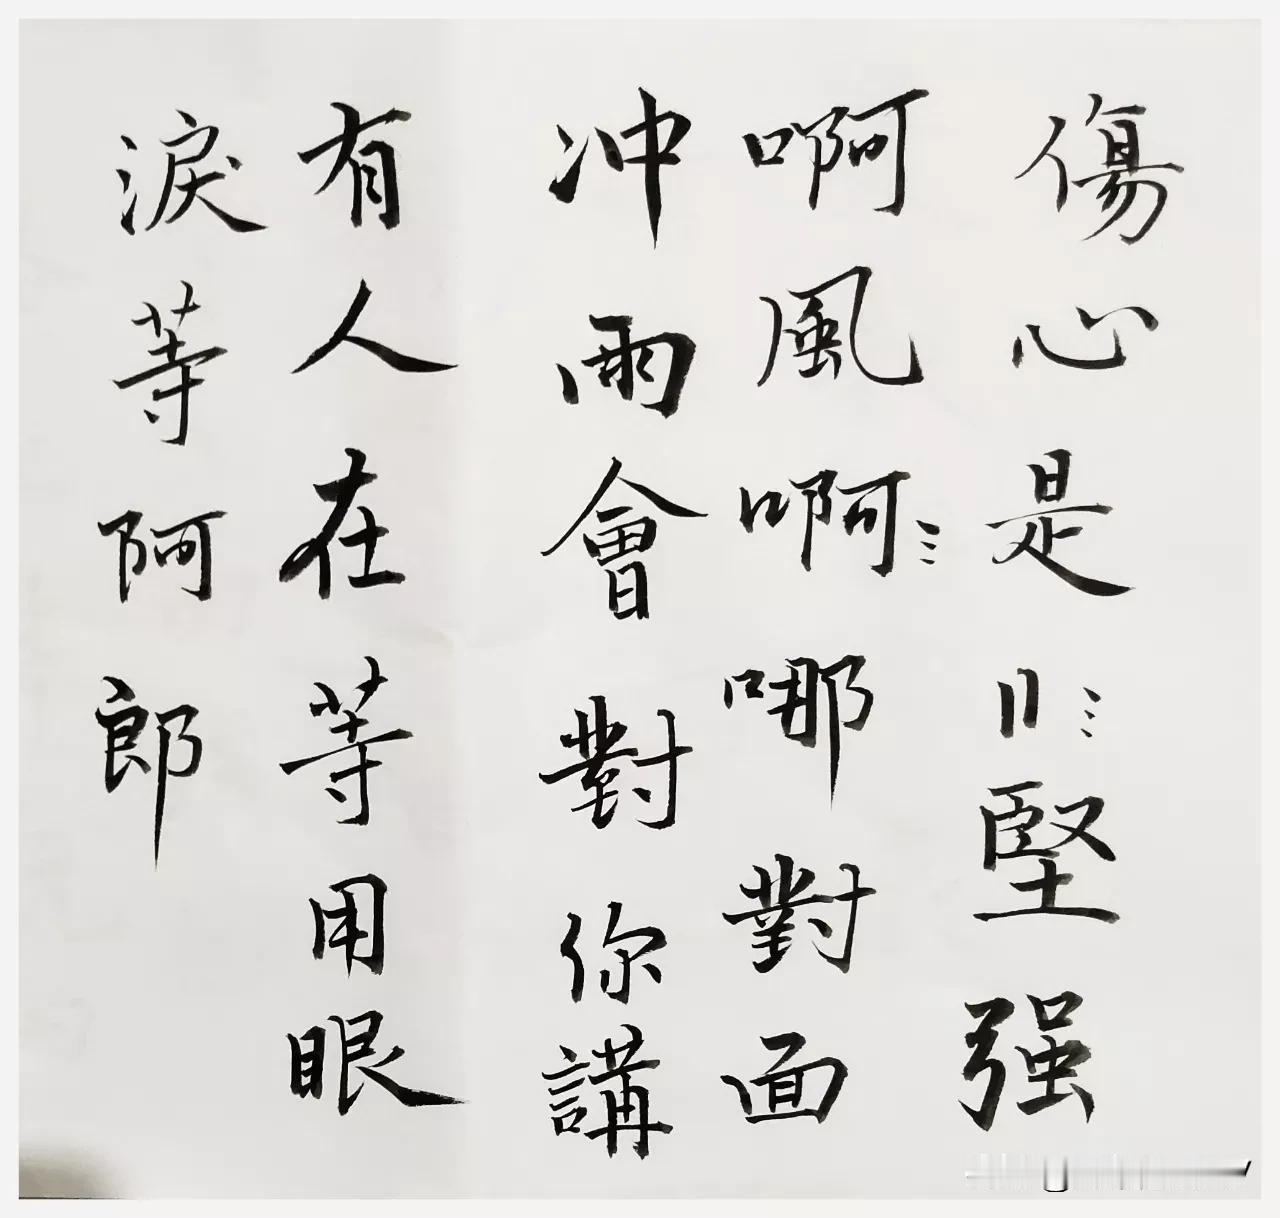 傷心是堅强
啊風啊哪對面
冲雨會對你講
有人在等用眼
淚等阿郎